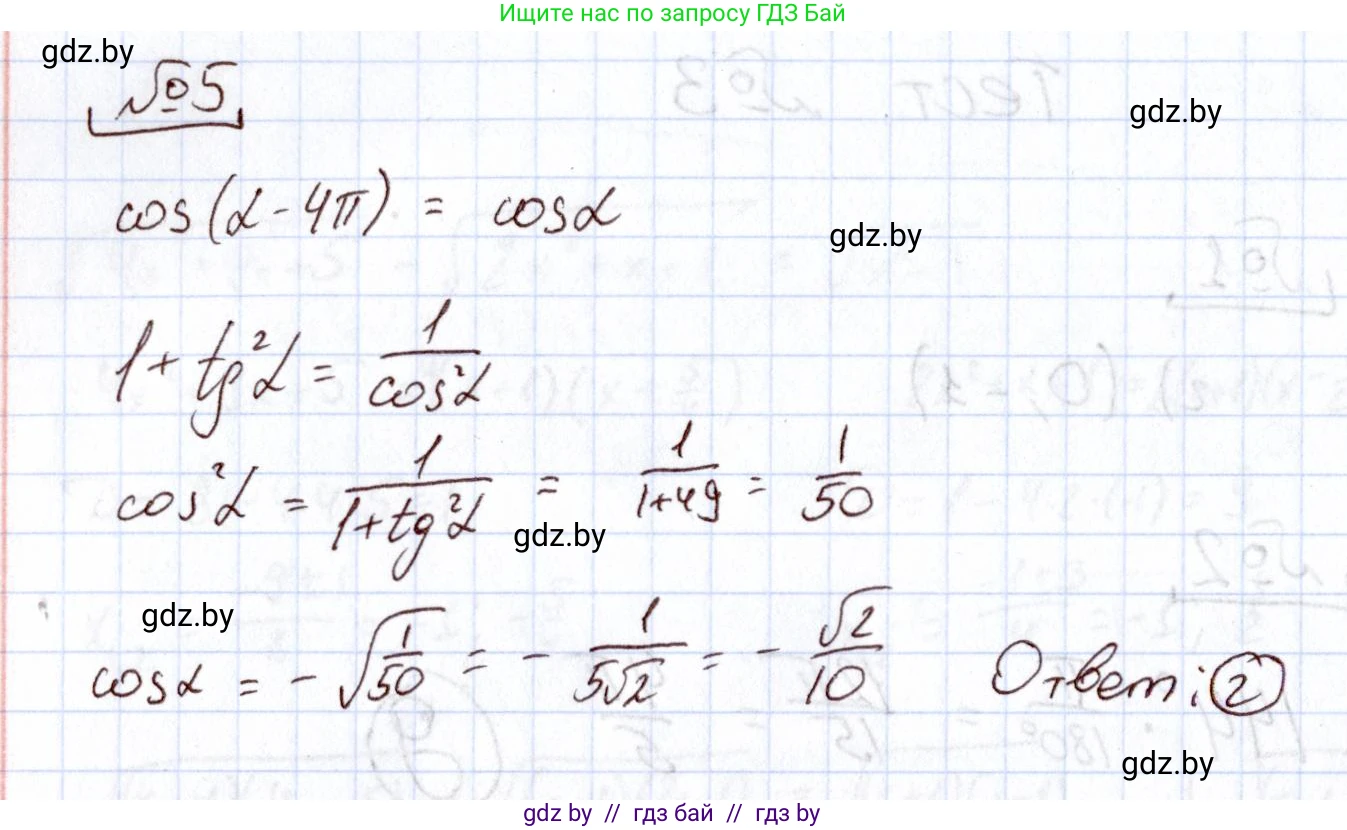 Ищите нас по запросу ГДЗ Бай
gdz.by
№5
gdz.by
cos(α-4π) = cosα
gdz.by
1+tg²α = 1/cos²α
cos²α = 1/(1+tg²α) = 1/(1+49) = 1/50
gdz.by
gdz.by
cosα = -√(1/50) = -1/(5√2) = -√2/10 Ответ: 2
gdz.by
gdz.by // гдз бай // гдз by